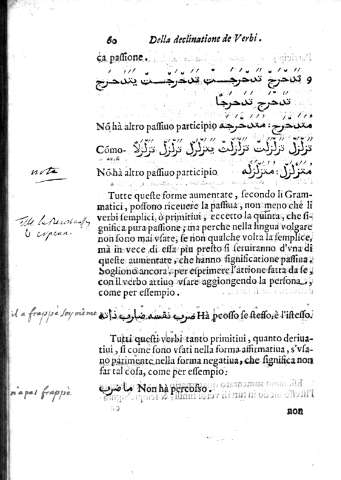 60 Della declinatione de Verbi.
ca passione.
و تَدَحْرَجَ تَدَحْرَجَتْ تَدَحْرَجْتَ يَتَدَحْرَجُ
تَدَحْرَجْ تَدَحْرُجًا
Nõ hà altro passiuo participio مُتَدَحْرِجْ : مُتَدَحْرِجَه
Cómo تَزَلْزَلَ تَزَلْزَلَتْ تَزَلْزَلْتَ يَتَزَلْزَلُ تَزَلْزَلْ تَزَلْزُلًا
nota
Nõ hà altro passiuo participio مُتَزَلْزِلْ : مُتَزَلْزِلَه
Tutte queste forme aumentate, secondo li Gram-
matici, possono riceuere la passiua, non meno ché li
verbi semplici, ò primitiui, eccetto la quinta, che si-
gnifica pura passione; ma perche nella lingua volgare
non sono mai vsate, se non qualche volta la semplice,
mà in vece di essa piu presto si seruiranno d'vna di
queste aumentate, che hanno significatione passiua.
Sogliono ancora, per esprimere l'attione fatta da se,
con il verbo attiuo vsare aggiongendo la persona,
come per essempio.
il a frappé soy mème
ضرب نفسه ضارب ذاته Hà peosso se stesso, è l'istesso.
Tutti questi verbi tanto primitiui, quanto deriua-
tiui, si come sono vsati nella forma affirmatiua, s'vsa-
no parimente nella forma negatiua, che significa non
far tal cosa, come per essempio:
n'a pas frappé
ما ضرب Non hà percosso.
non